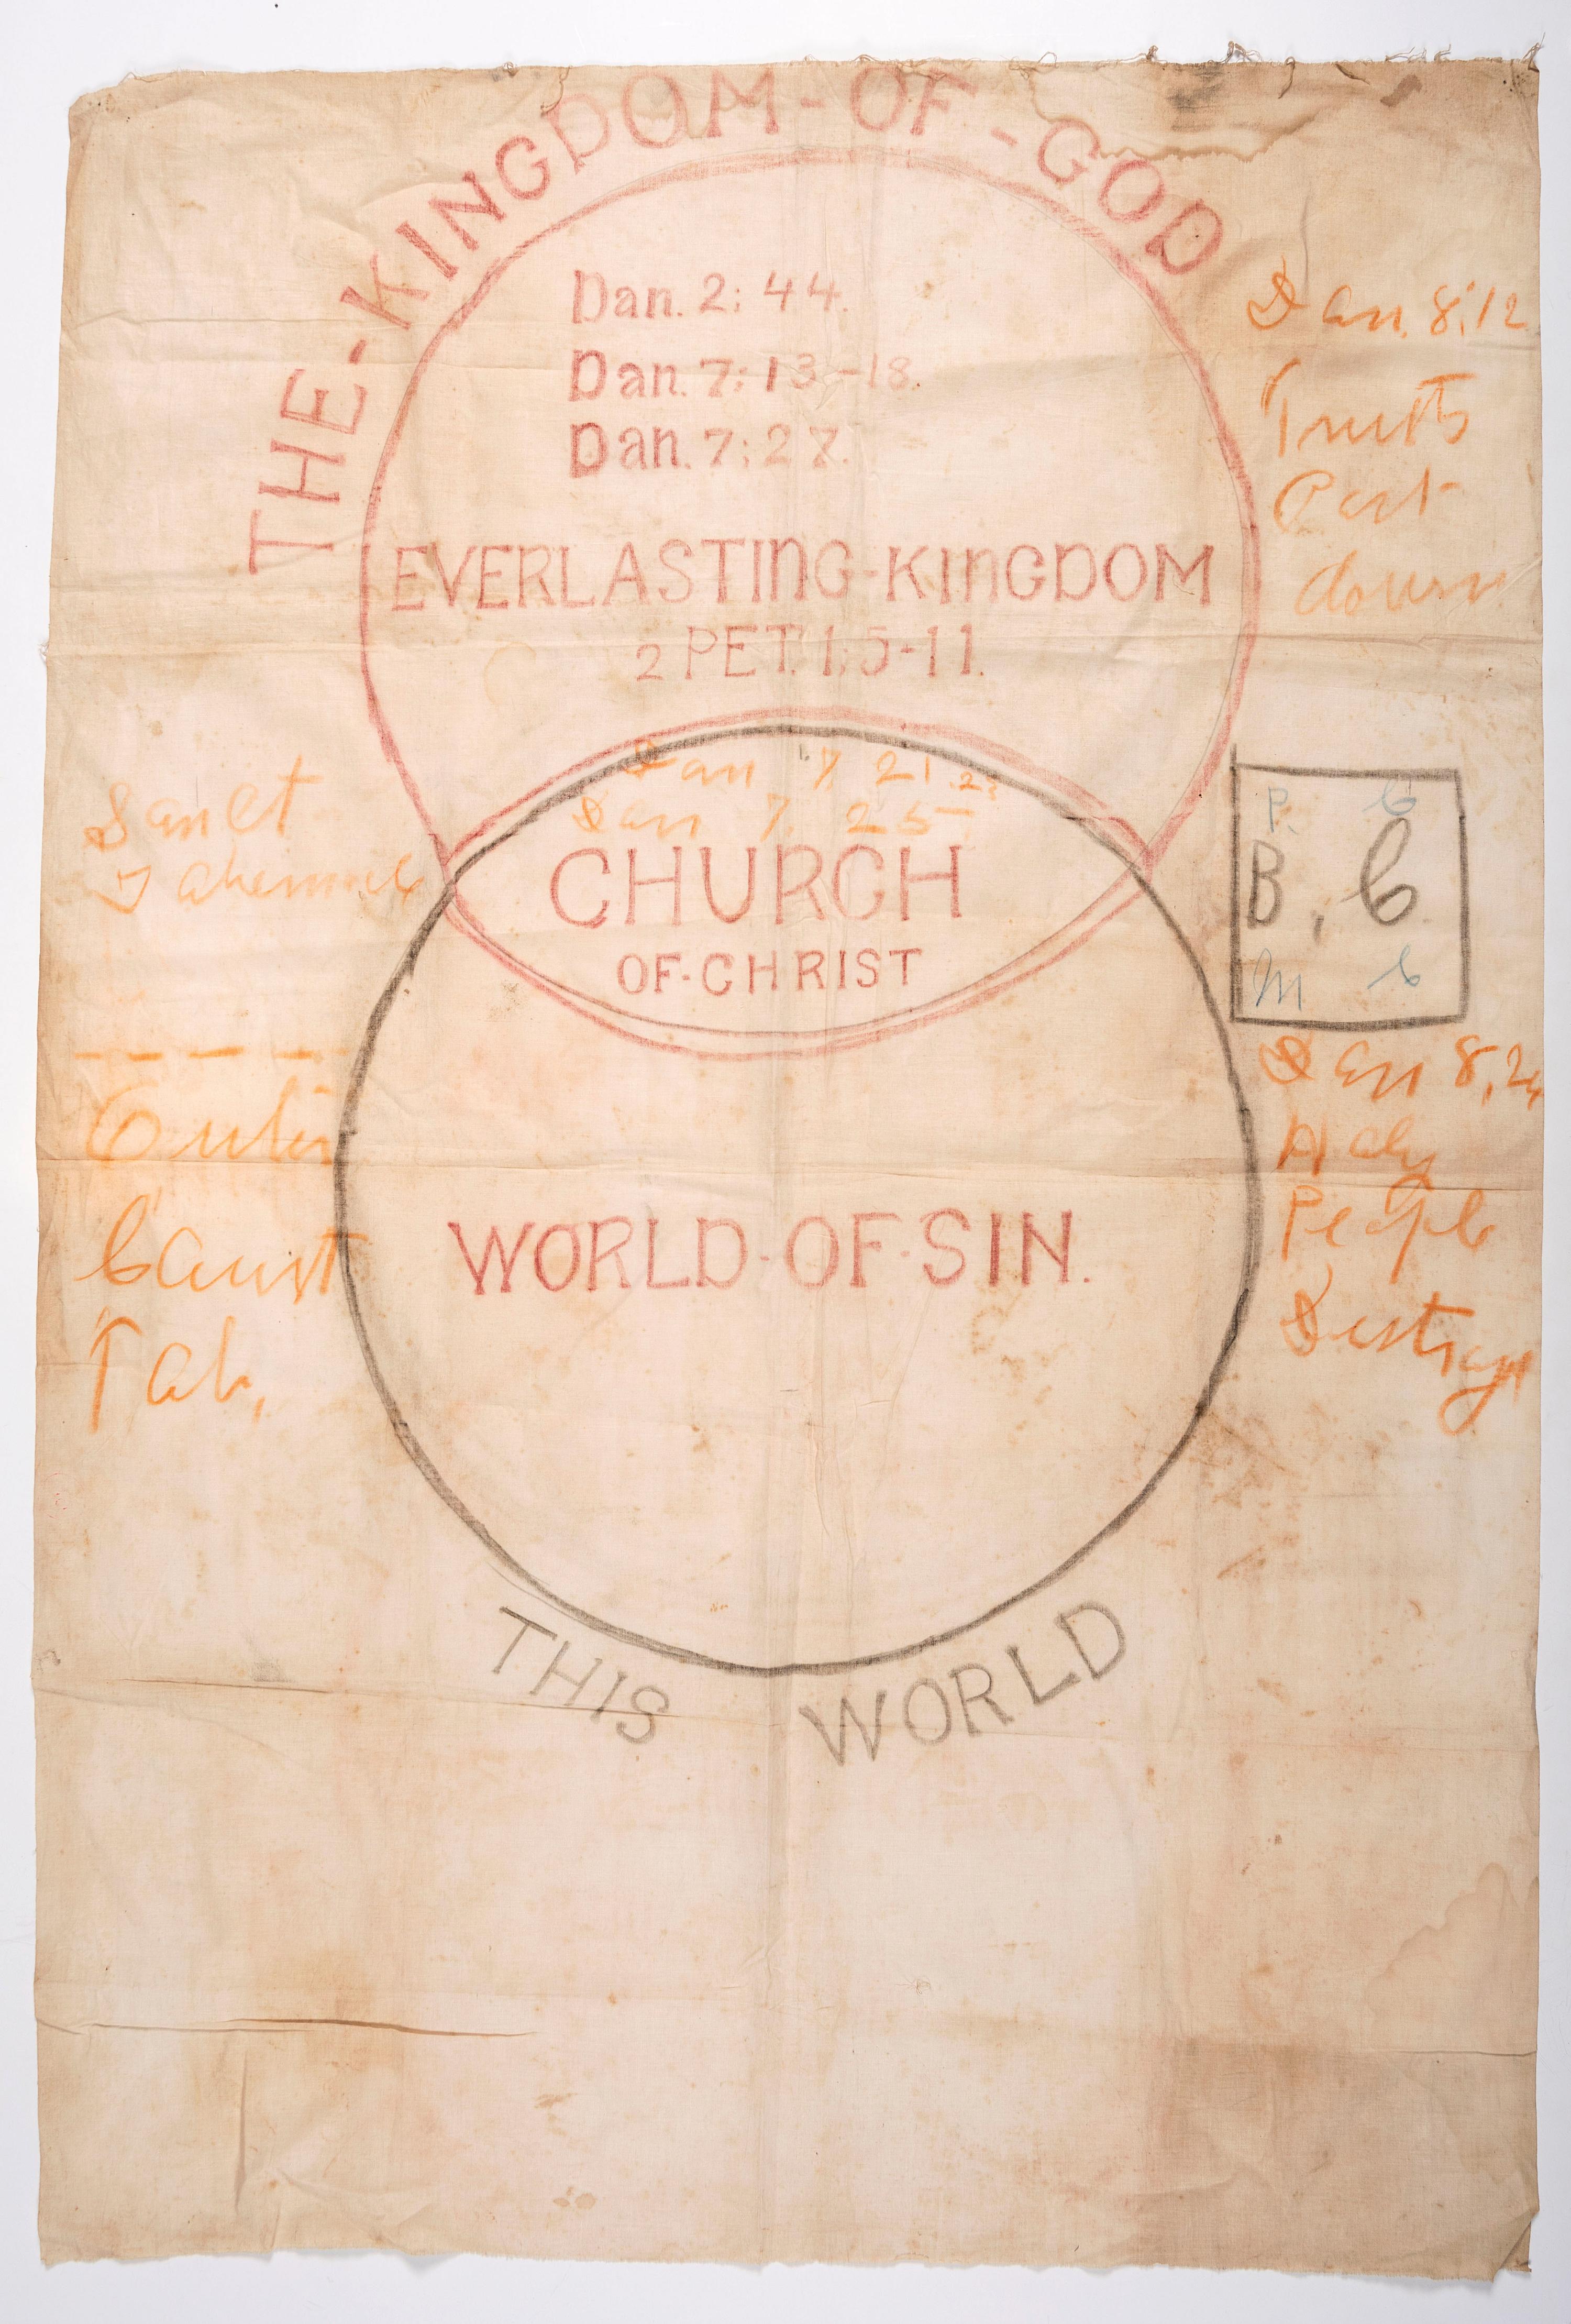 THE-KINGDOM-OF-GOD
Dan. 2:44.
Dan. 7:13-18.
Dan. 7:27.
EVERLASTING-KINGDOM
2 PET. 1:5-11.
Dan 7 21.
Dan 7. 25
CHURCH
OF-CHRIST
WORLD-OF-SIN.
THIS WORLD
Sanct
Tabernacle
Outer
Court
Tab,
Dan. 8:12
Truth
Cast
down
P. C
B, C
M C
Dan 8,24
Holy
People
Destroy